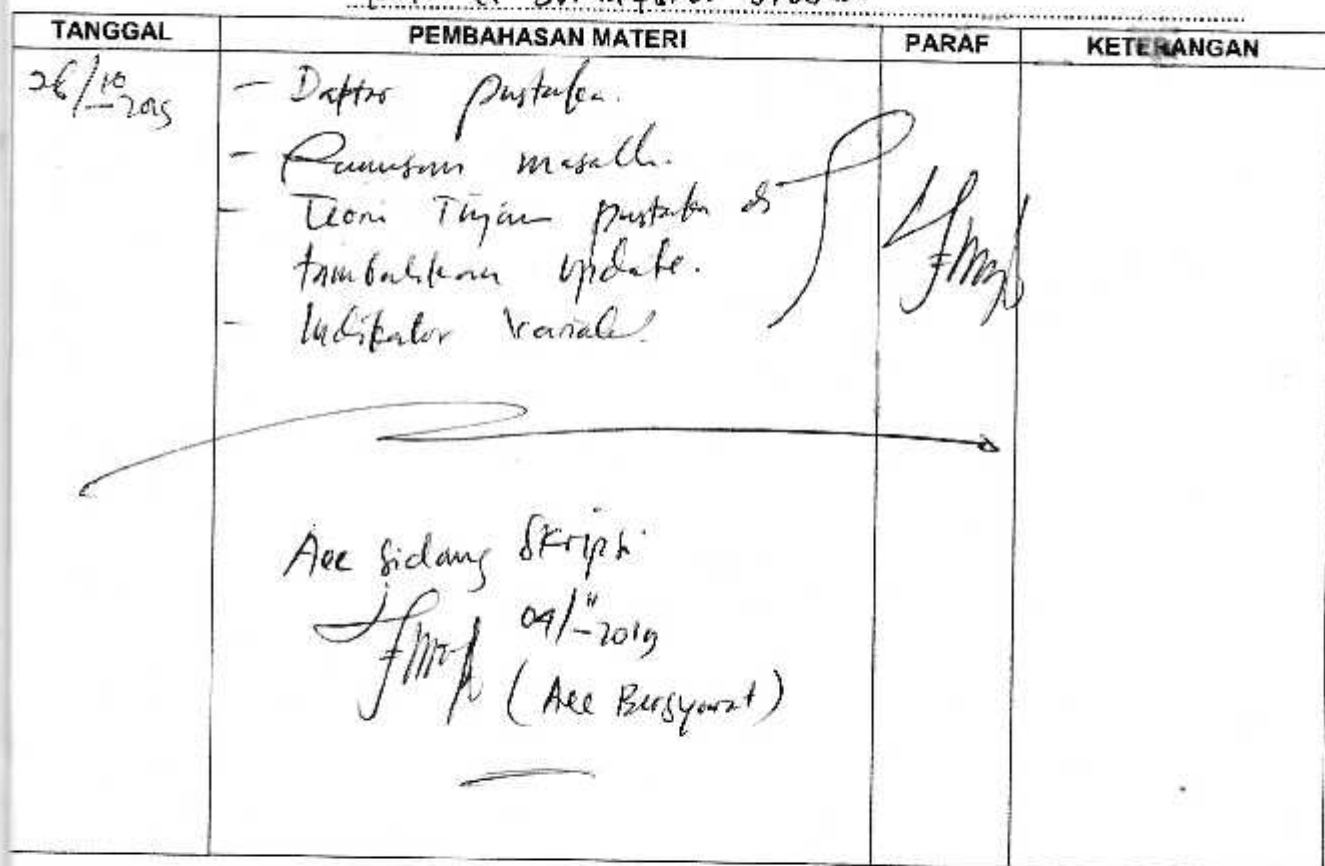 TANGGAL PEMBAHASAN MATERI PARAF KETERANGAN
26/10-2019 - Daftar pustaka.
- Rumusan masalah.
- Teori Tinjauan pustaka di
tambahkan update.
- Indikator variabel
Acc Sidang Skripsi
04/11-2019
(Acc Bersyarat)